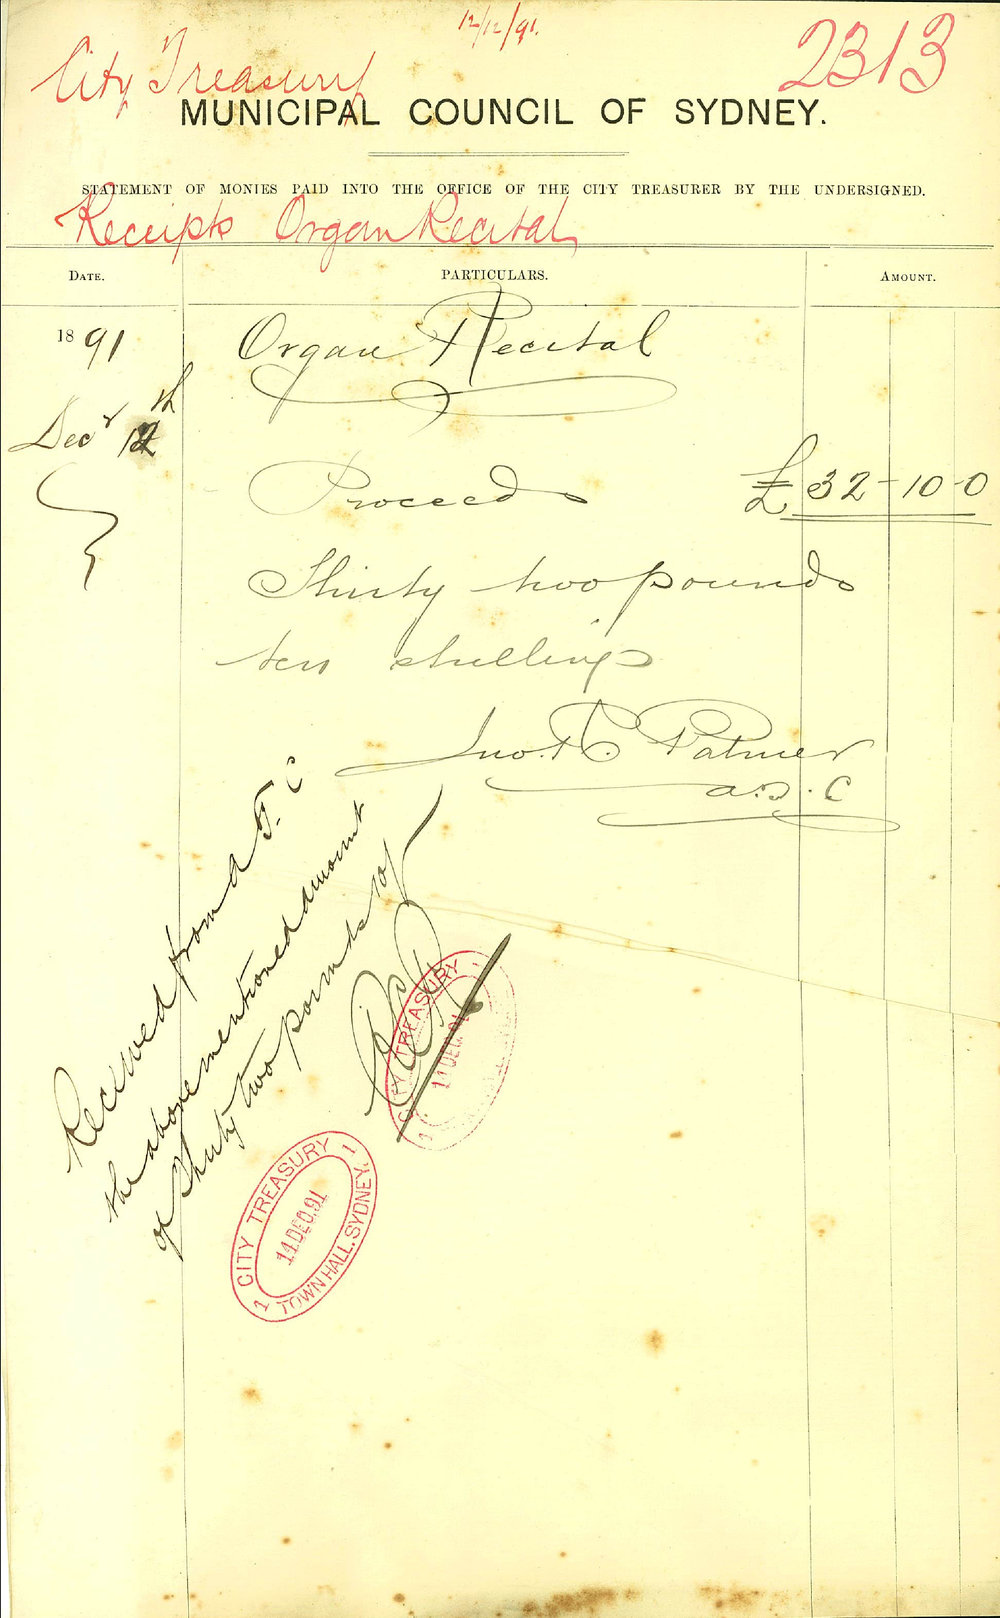 12/12/91.
City Treasury
2313
MUNICIPAL COUNCIL OF SYDNEY.
STATEMENT OF MONIES PAID INTO THE OFFICE OF THE CITY TREASURER BY THE UNDERSIGNED.
Receipts Organ Recital
DATE. PARTICULARS. AMOUNT.
1891 Organ Recital
Decr 12th
Proceeds £32-10-0
Thirty two pounds
ten shillings
Jno. Palmer
a.T.C
Received from a T. C
the above mentioned amount
of Thirty two pounds 10/
CITY TREASURY
11 DEC. 91
1 CITY TREASURY 1
14 DEC. 91
TOWN HALL. SYDNEY.